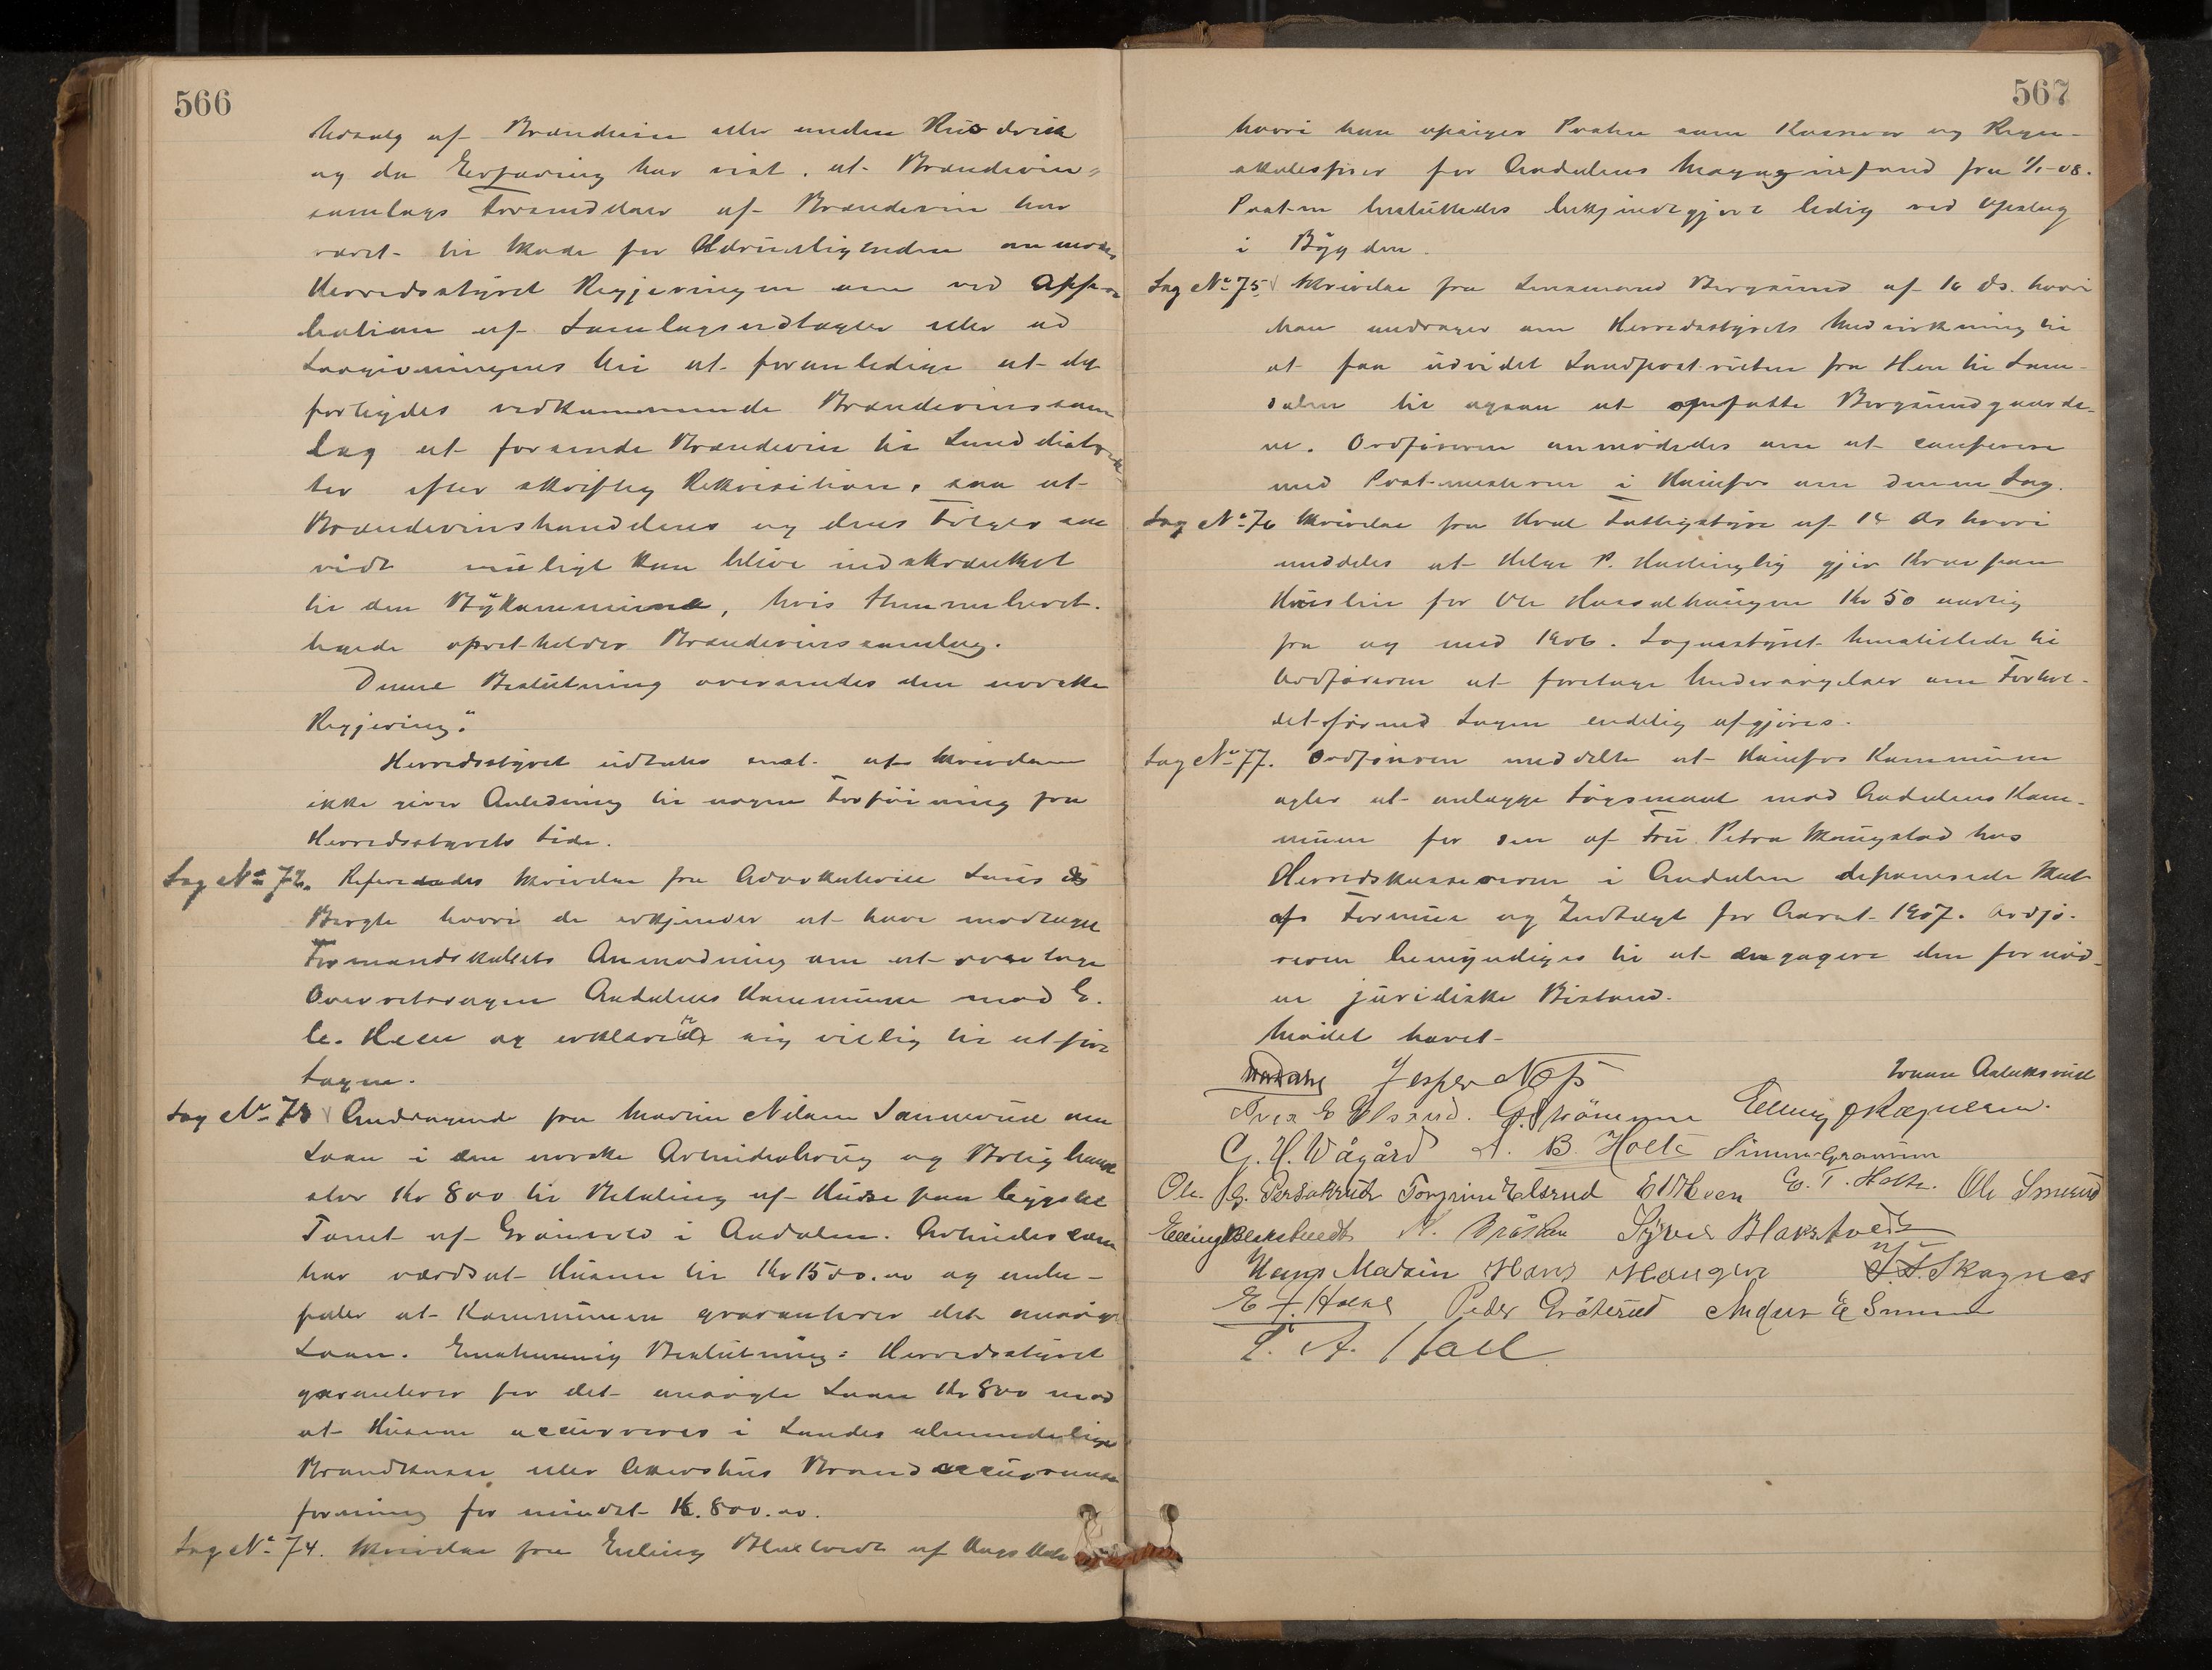 566
Udsalg af Brændevin eller anden Rusdrik
og da Erfaring har vist, at Brændevin-
samlags Forsendelser af Brændevin har
været til Skade for Ædrueligheden anmoder
Herredsstyret Regjeringen om ved Appro-
bation af Samlagsvedtægter eller ad
Lovgivningens Vei at foranledige at det
forbydes vedkommende Brændevinssam
lag at forsende Brændevin til Landdistrik
ter efter skriftlig Rekvisition, saa at
Brændevinshandelens og dens Følger saa
vidt muligt kan blive indskrænket
til den Bykommune, hvis Stemmeberet-
tigede opretholder Brændevinssamlag.
Denne Beslutning oversendes den norske
Regjering."
Herredsstyret udtalte enst. at Skrivelsen
ikke giver Anledning til nogen Forføining fra
Herredsstyrets Side.
Sag No 72. Refereredes Skrivelse fra Advokaterne
hvori de erkjender at have modtaget
Formandskabets Anmodning om at overtage
Overretssagen Aadalens Kommune mod E.
E. Heen og erklærer sig villig til at føre
Sagen.
Sag No 73 Andragende fra Martin Nilsen om
Laan i den norske Arbeiderbrug og Boligbank
stor Kr 800 til Betaling af Huse paa bygslet
Tomt af i Aadalen.
har værdsat Husene til Kr 1500.00 og anbe-
faler at Kommunen garanterer det ansøgte
Laan. Enstemmig Beslutning: Herredsstyret
garanterer for det ansøgte Laan Kr 800 mod
at Husene assureres i Landets almindelige
Brandkasse eller Akershus Brandassurance
forening for mindst Kr. 800.00.
Sag No 74. Skrivelse fra Erling Blakstvedt af
567
hvori han opsiger Posten som Kasserer og Regn-
skabsfører for Aadalens Magazinfond fra 1/1-08.
Posten besluttedes bekjendtgjort ledig ved Opslag
i Bygden.
Sag No 75 Skrivelse fra Lensmand Bergsund af 16 ds. hvori
han andrager om Herredsstyrets Medvirkning til
at faa udvidet Landpostruten fra Hen til Som-
dalen til ogsaa at omfatte Bergsundgaarde-
ne. Ordføreren anmodedes om at conferere
med Postmesteren i Hønefos om denne Sag.
Sag No 76 Skrivelse fra Hole Fattigstyre af 14 ds hvori
meddeles at Helge P. gjør Krav paa
Husleie for Ole Kr 50 aarlig
fra og med 1906. Sognestyret henstillede til
Ordføreren at foretage Undersøgelser om Forhol-
det førend Sagen endelig afgjøres.
Sag No 77. Ordføreren meddelte at Hønefos Kommune
agter at anlægge Søgsmaal mod Aadalens Kom-
mune for den af Fru Petra Skougstad hos
Herredskassereren i Aadalen deponerede Skat
af Formue og Indtægt for Aaret 1907. Ordfø-
reren bemyndiges til at engagere den fornød-
ne juridiske Bistand.
Mødet hævet
Jesper Næss
Iver E Elsrud. G. Strömmen Elling
G. H. Vågård A. B. Holte Simen Gransum
Ole G. Torgrim Elsrud E. T. Holte. Ole Smeud
Elling Blakstvedt N. Bråthen Syver Blakstvedt
Hans Madsen Hans Haugen Skagnæs
E. J. Holte Peder Gröterud Anders E Smeud
T. A. Hall